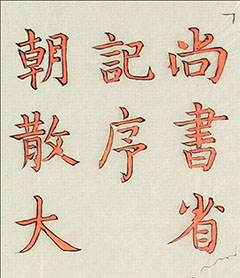 尚書省
記序
朝散大